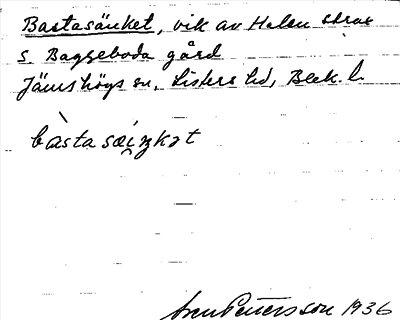 Bastasänket, vik av Halen strax
s. Baggeboda gård
Jämshögs sn, Listers hd, Blek. l.
bàstasæiŋkət
Pettersson 1936